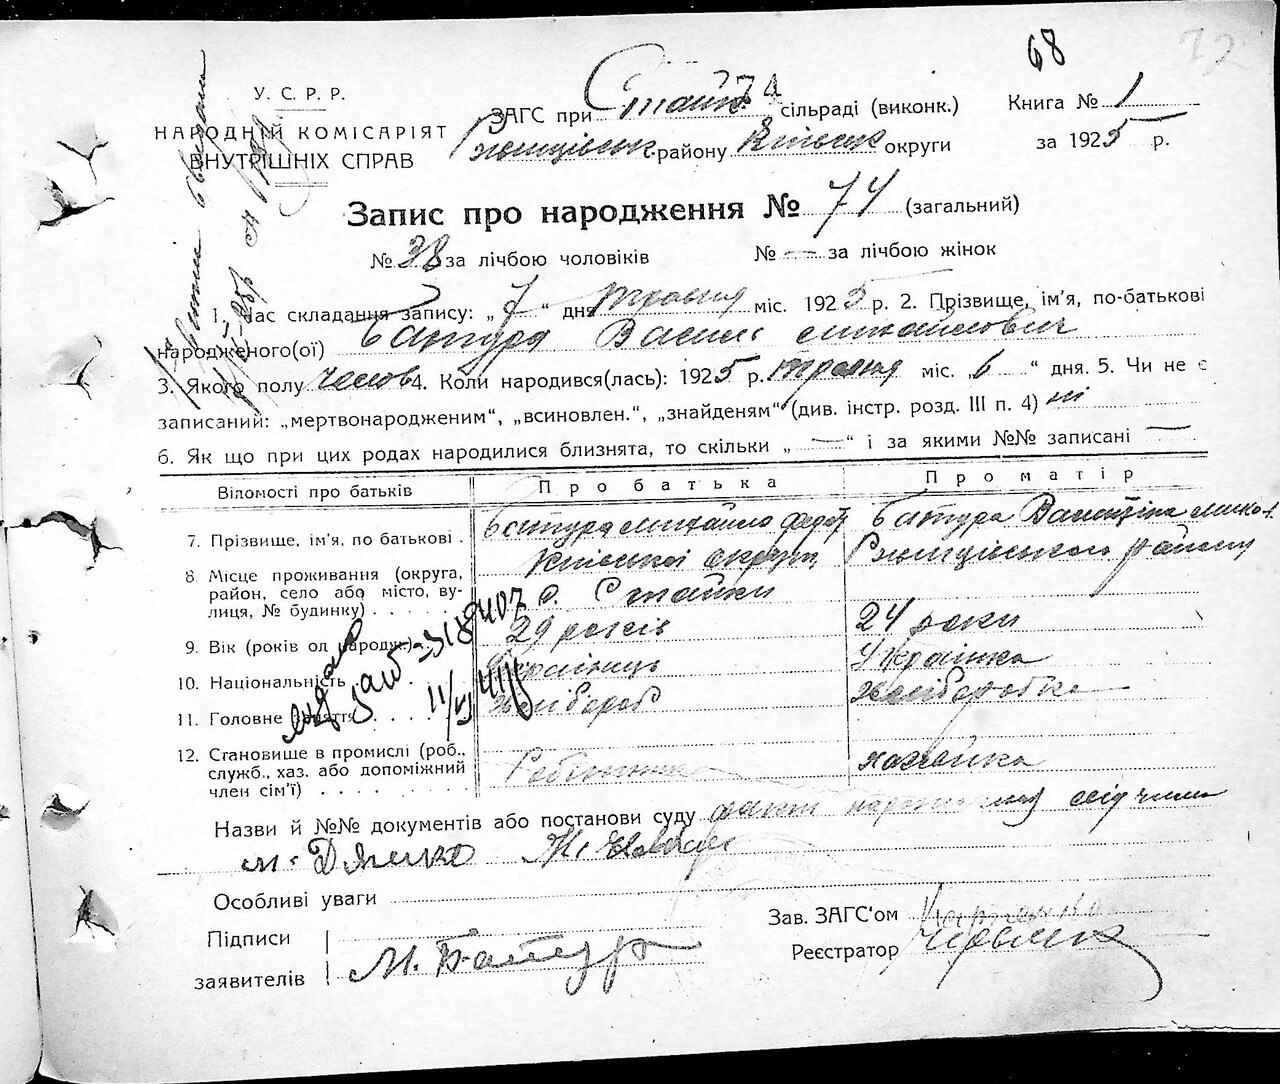 68
72
74
У. С. Р. Р.
НАРОДНІЙ КОМІСАРІЯТ
ВНУТРІШНІХ СПРАВ
ЗАГС при Стайк. сільраді (виконк.)
Ржищівськ. району Київськ округи
Книга № 1
за 1925 р.
Запис про народження № 74 (загальний)
№ 38 за лічбою чоловіків № — за лічбою жінок
1. Час складання запису: „ 7 “ дня травня міс. 1925 р. 2. Прізвище, ім'я, по-батькові
народженого(ої) Батура Василь Михайлович
3. Якого полу чолов 4. Коли народився(лась): 1925 р. травня міс. „ 6 “ дня. 5. Чи не є
записаний: „мертвонародженим“, „всиновлен.“, „знайденям“ (див. інстр. розд. III п. 4) ні
6. Як що при цих родах народилися близнята, то скільки „ — “ і за якими №№ записані —
Віломості про батьків Про батька Про матір
7. Прізвище, ім'я, по батькові . Батура Михайло Федот Батура Валентіна Микол.
8. Місце проживання (округа, район, село або місто, вулиця, № будинку) Київської округи Ржищівського району
с. Стайки
9. Вік (років од народж.) 29 років 24 роки
10. Національність Українець Українка
11. Головне заняття хлібороб хлiборобка
12. Становище в промислі (роб.,
служб., хаз. або допоміжний
член сім'ї) хазяйка
видано
11/VI 41
Назви й №№ документів або постанови суду факт народження свідчили
м. Дяченко
Особливі уваги
Підписи
заявителів М. Батура
Зав. ЗАГС'ом
Реєстратор